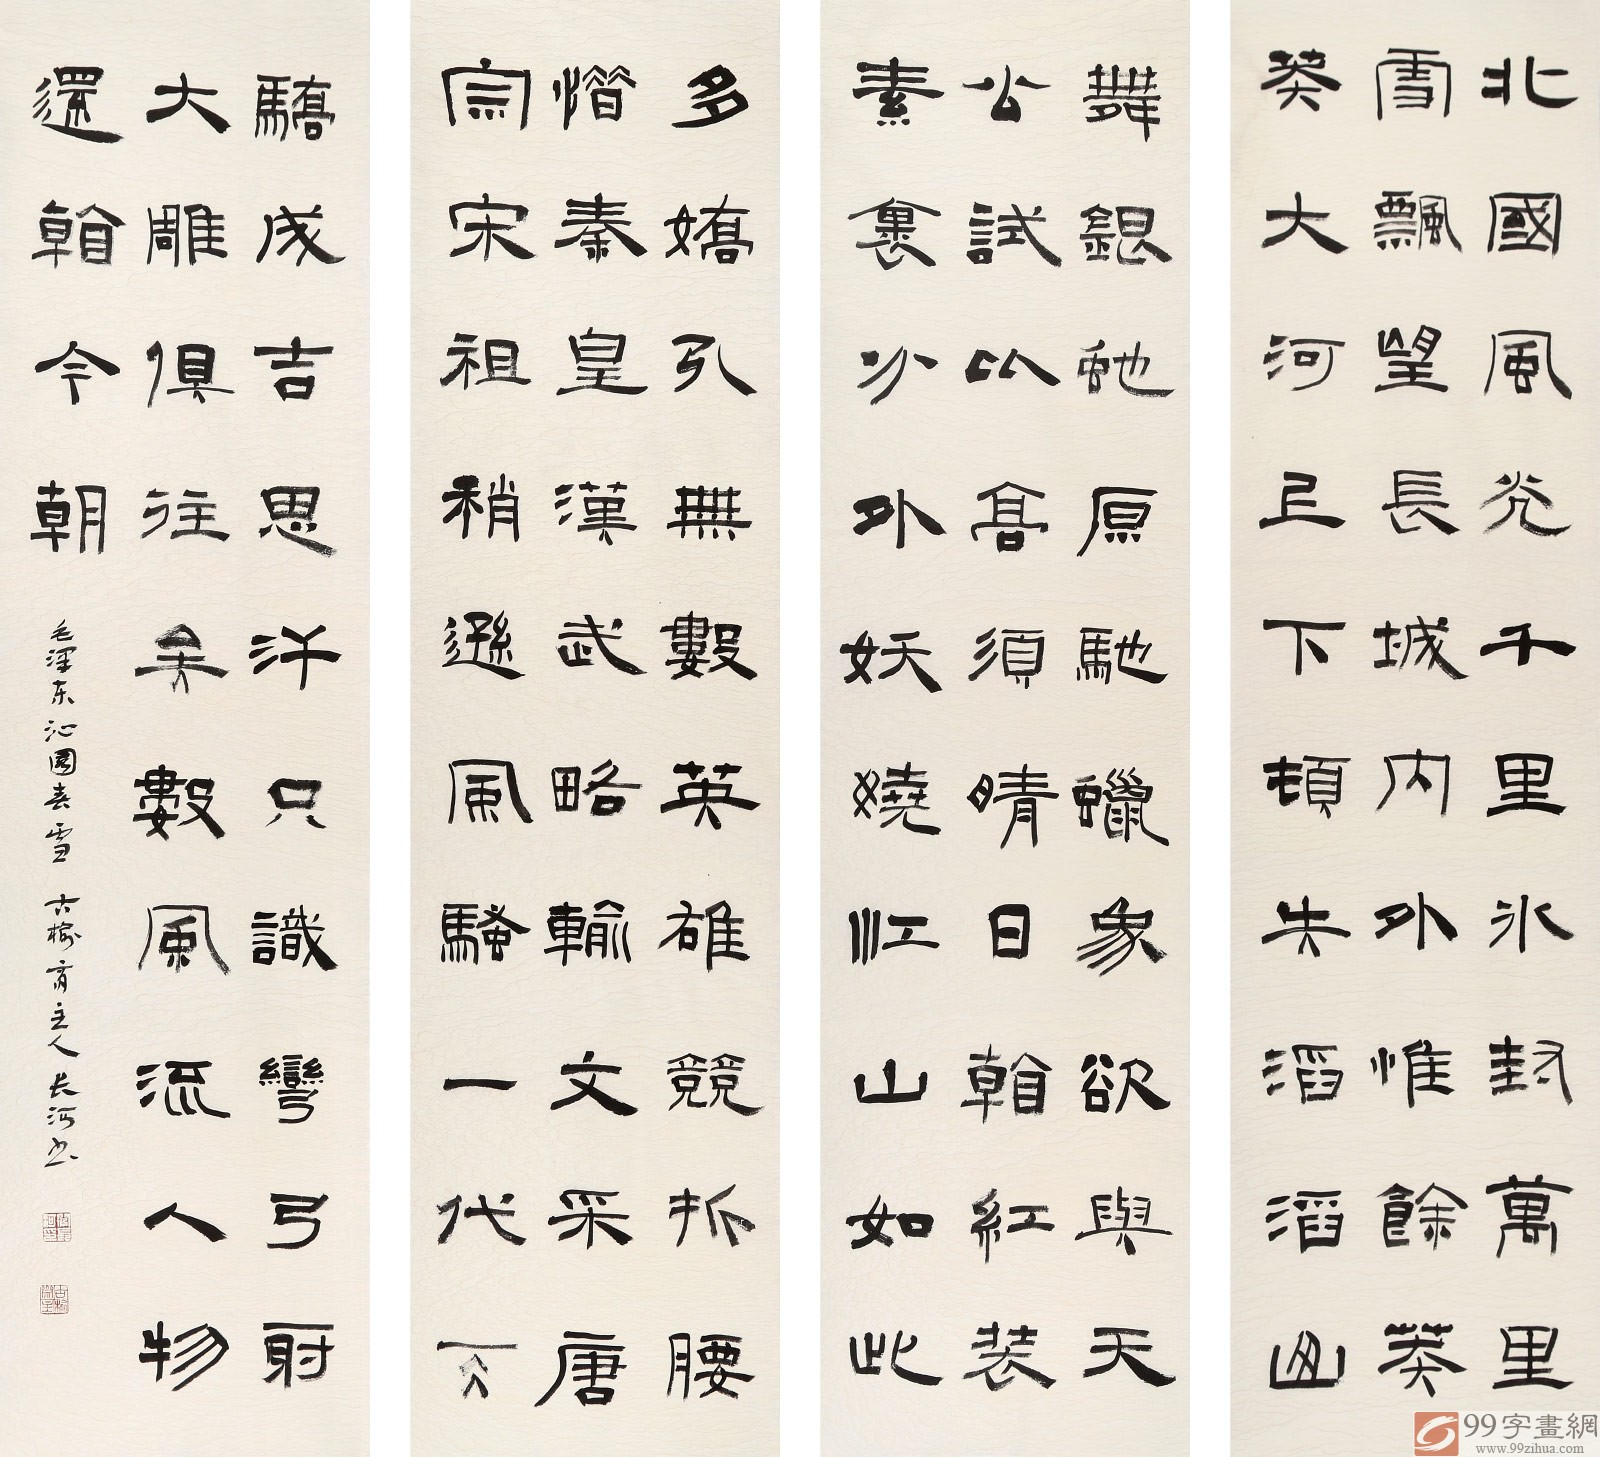 北國風光千里氷封萬里
雪飄望長城内外惟餘莽
莽大河上下頓失滔滔山
舞銀蛇原馳蠟象欲與天
公試比高須晴日看紅裝
素裹分外妖嬈江山如此
多嬌引無數英雄競折腰
惜秦皇漢武略輸文采唐
宗宋祖稍遜風騷一代天
驕成吉思汗只識彎弓射
大雕俱往矣數風流人物
還看今朝
毛澤东沁園春雪 古榆斋主人长河书
99字畫網
www.99zihua.com